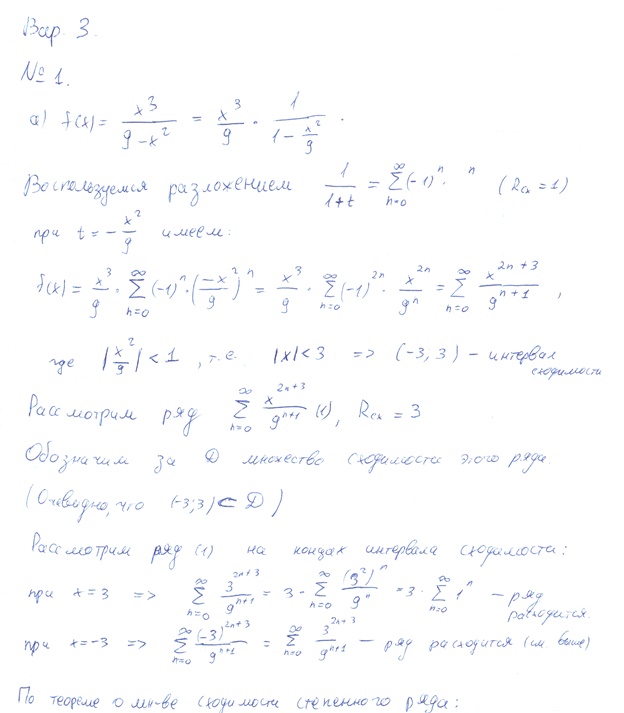 Вар. 3.
№ 1.
а) f(x) = x^3/(9-x^2) = x^3/9 · 1/(1 - x^2/9) .
Воспользуемся разложением 1/(1+t) = ∑_{n=0}^{∞} (-1)^n · ^n (Rсх = 1)
при t = -x^2/9 имеем:
f(x) = x^3/9 · ∑_{n=0}^{∞} (-1)^n · (-x^2/9)^n = x^3/9 · ∑_{n=0}^{∞} (-1)^{2n} · x^{2n}/9^n = ∑_{n=0}^{∞} x^{2n+3}/9^{n+1} ,
где |x^2/9| < 1 , т.е. |x| < 3 => (-3, 3) - интервал сходимости
Рассмотрим ряд ∑_{n=0}^{∞} x^{2n+3}/9^{n+1} (1), Rсх = 3
Обозначим за D множество сходимости этого ряда.
(Очевидно, что (-3;3) ⊂ D)
Рассмотрим ряд (1) на концах интервала сходимости:
при x=3 => ∑_{n=0}^{∞} 3^{2n+3}/9^{n+1} = 3 · ∑_{n=0}^{∞} (3^2)^n/9^n = 3 · ∑_{n=0}^{∞} 1^n - ряд расходится.
при x=-3 => ∑_{n=0}^{∞} (-3)^{2n+3}/9^{n+1} = ∑_{n=0}^{∞} 3^{2n+3}/9^{n+1} - ряд расходится (см. выше)
По теореме о мн-ве сходимости степенного ряда: